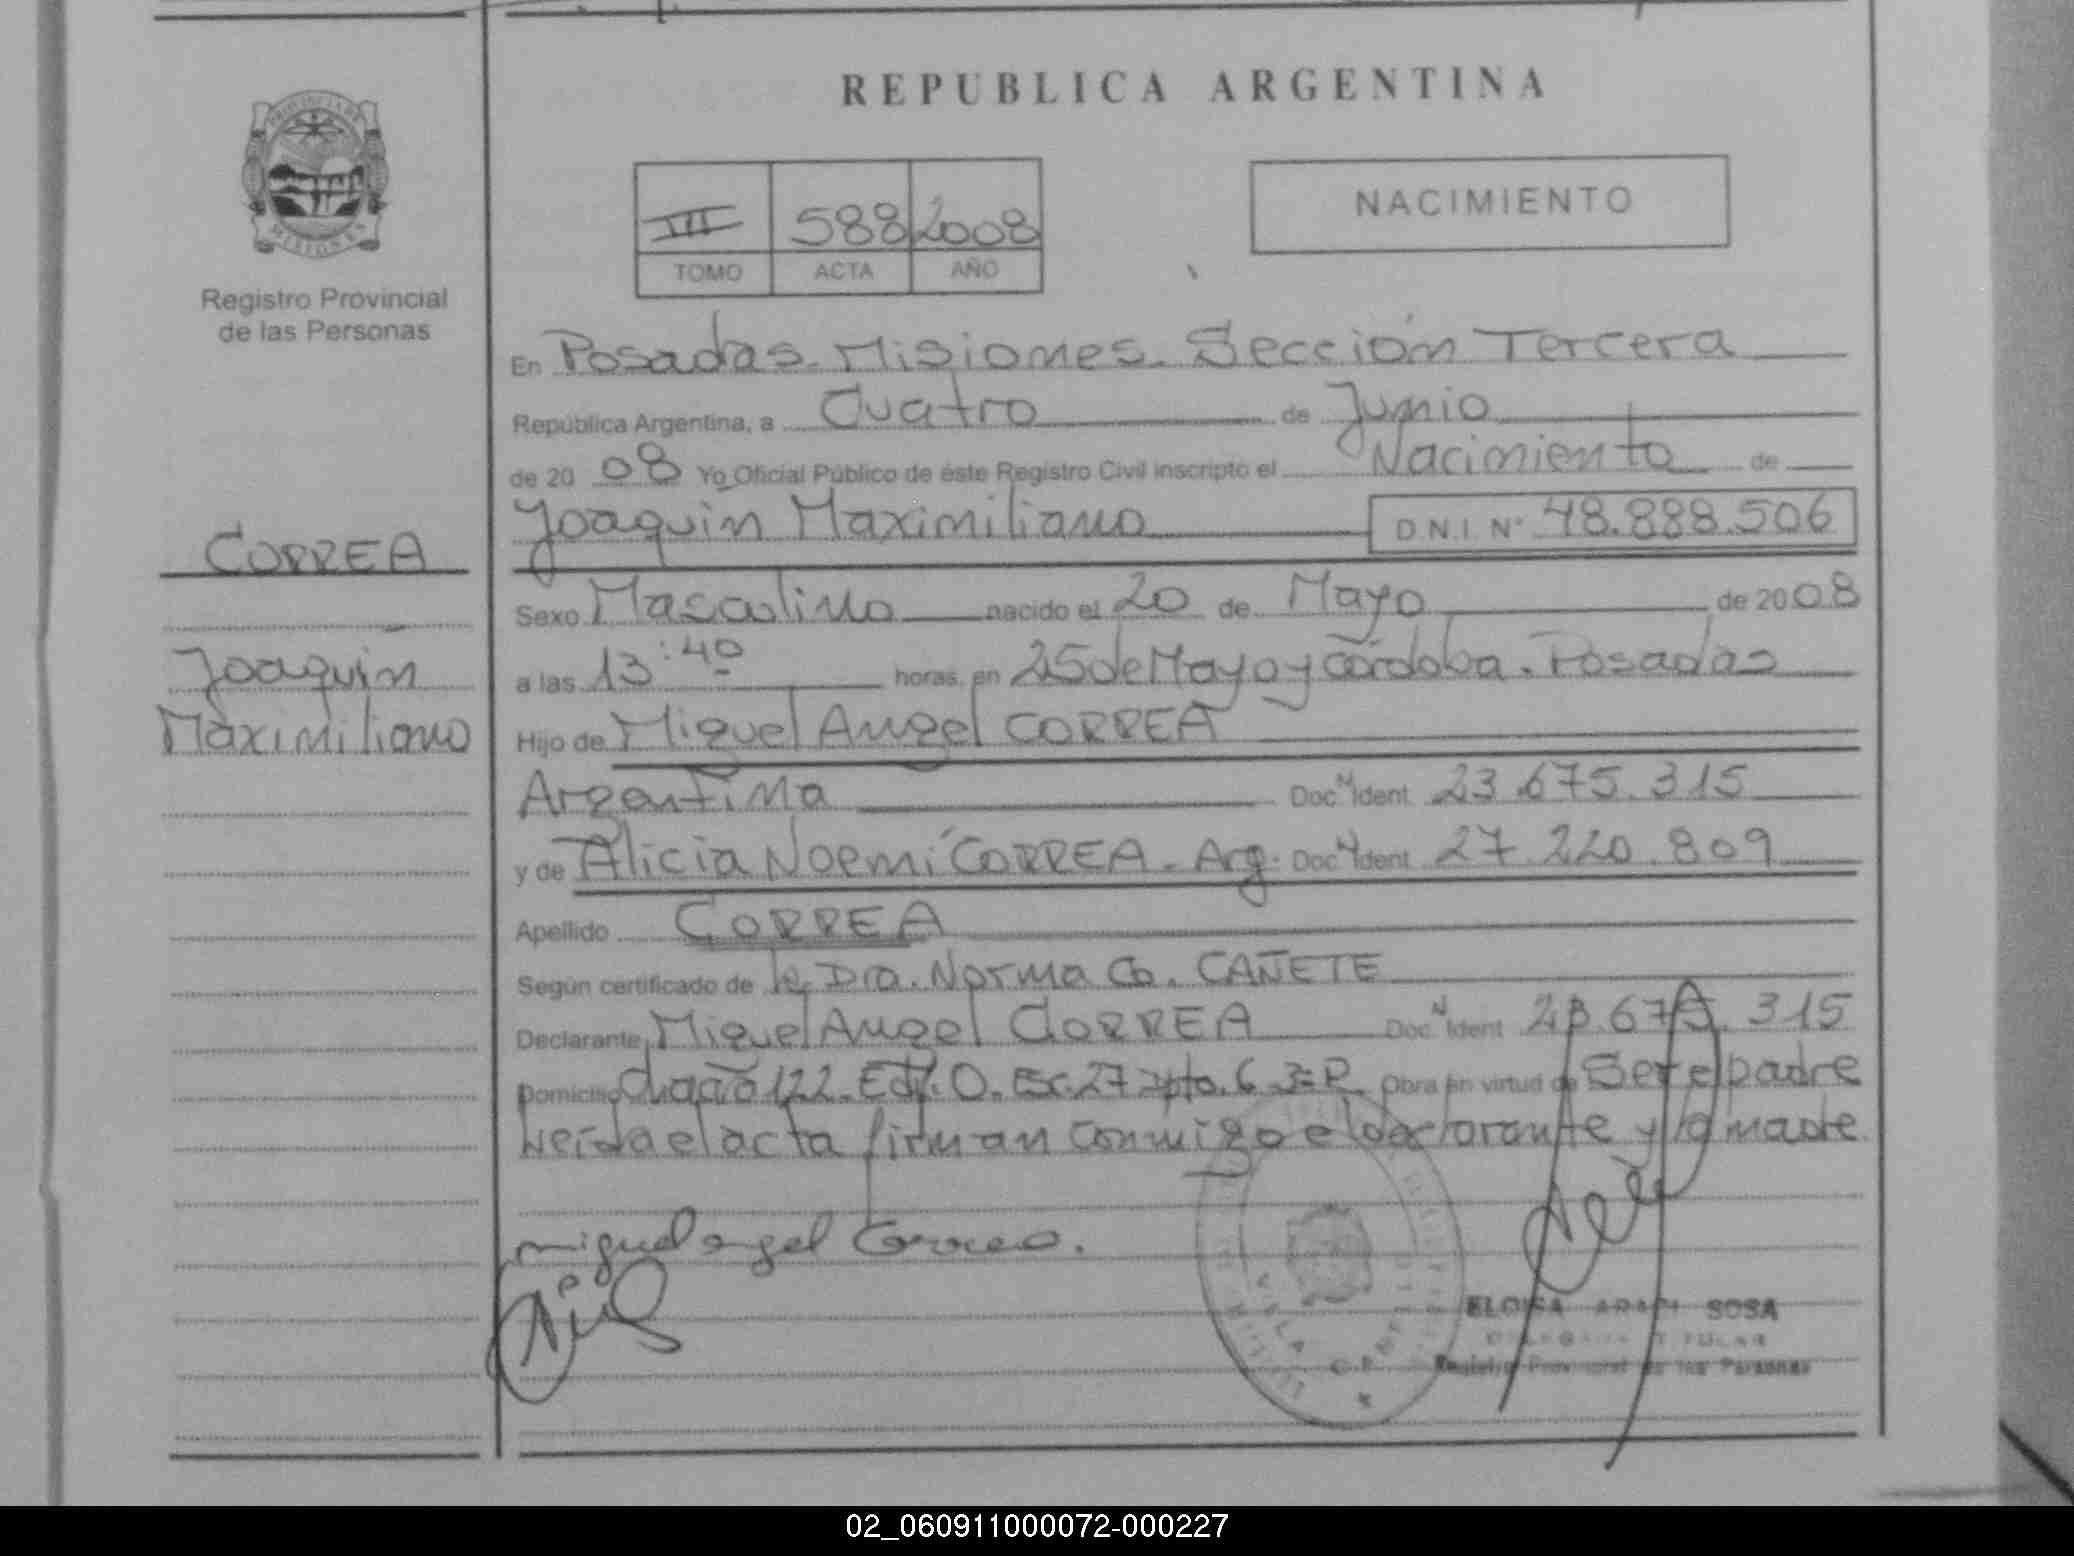 REPUBLICA ARGENTINA
PROVINCIA DE
MISIONES
Registro Provincial
de las Personas
III 588 2008
TOMO ACTA AÑO
NACIMIENTO
En Posadas. Misiones. Sección Tercera
República Argentina, a Cuatro de Junio
de 20 08 Yo Oficial Público de éste Registro Civil inscripto el Nacimiento de
Joaquin Maximiliano D.N.I. Nº 48.888.506
CORREA
Sexo Masculino nacido el 20 de Mayo de 2008
Joaquin
Maximiliano
a las 13:40 horas, en 25 de Mayo y Córdoba. Posadas
Hijo de Miguel Angel CORREA
Argentina Doc N Ident 23.675.315
y de Alicia Noemí CORREA. Arg. Doc N Ident 27.220.809
Apellido CORREA
Según certificado de la Dra. Norma CAÑETE
Declarante Miguel Angel CORREA Doc N Ident 23.675.315
Domicilio 122. Edf. O. Esc. 27 6 Obra en virtud de Ser el padre
Leída el acta firman conmigo el declarante y la madre
miguel angel Correa.
ELOISA SOSA
Registro Provincial de las Personas
02_060911000072-000227